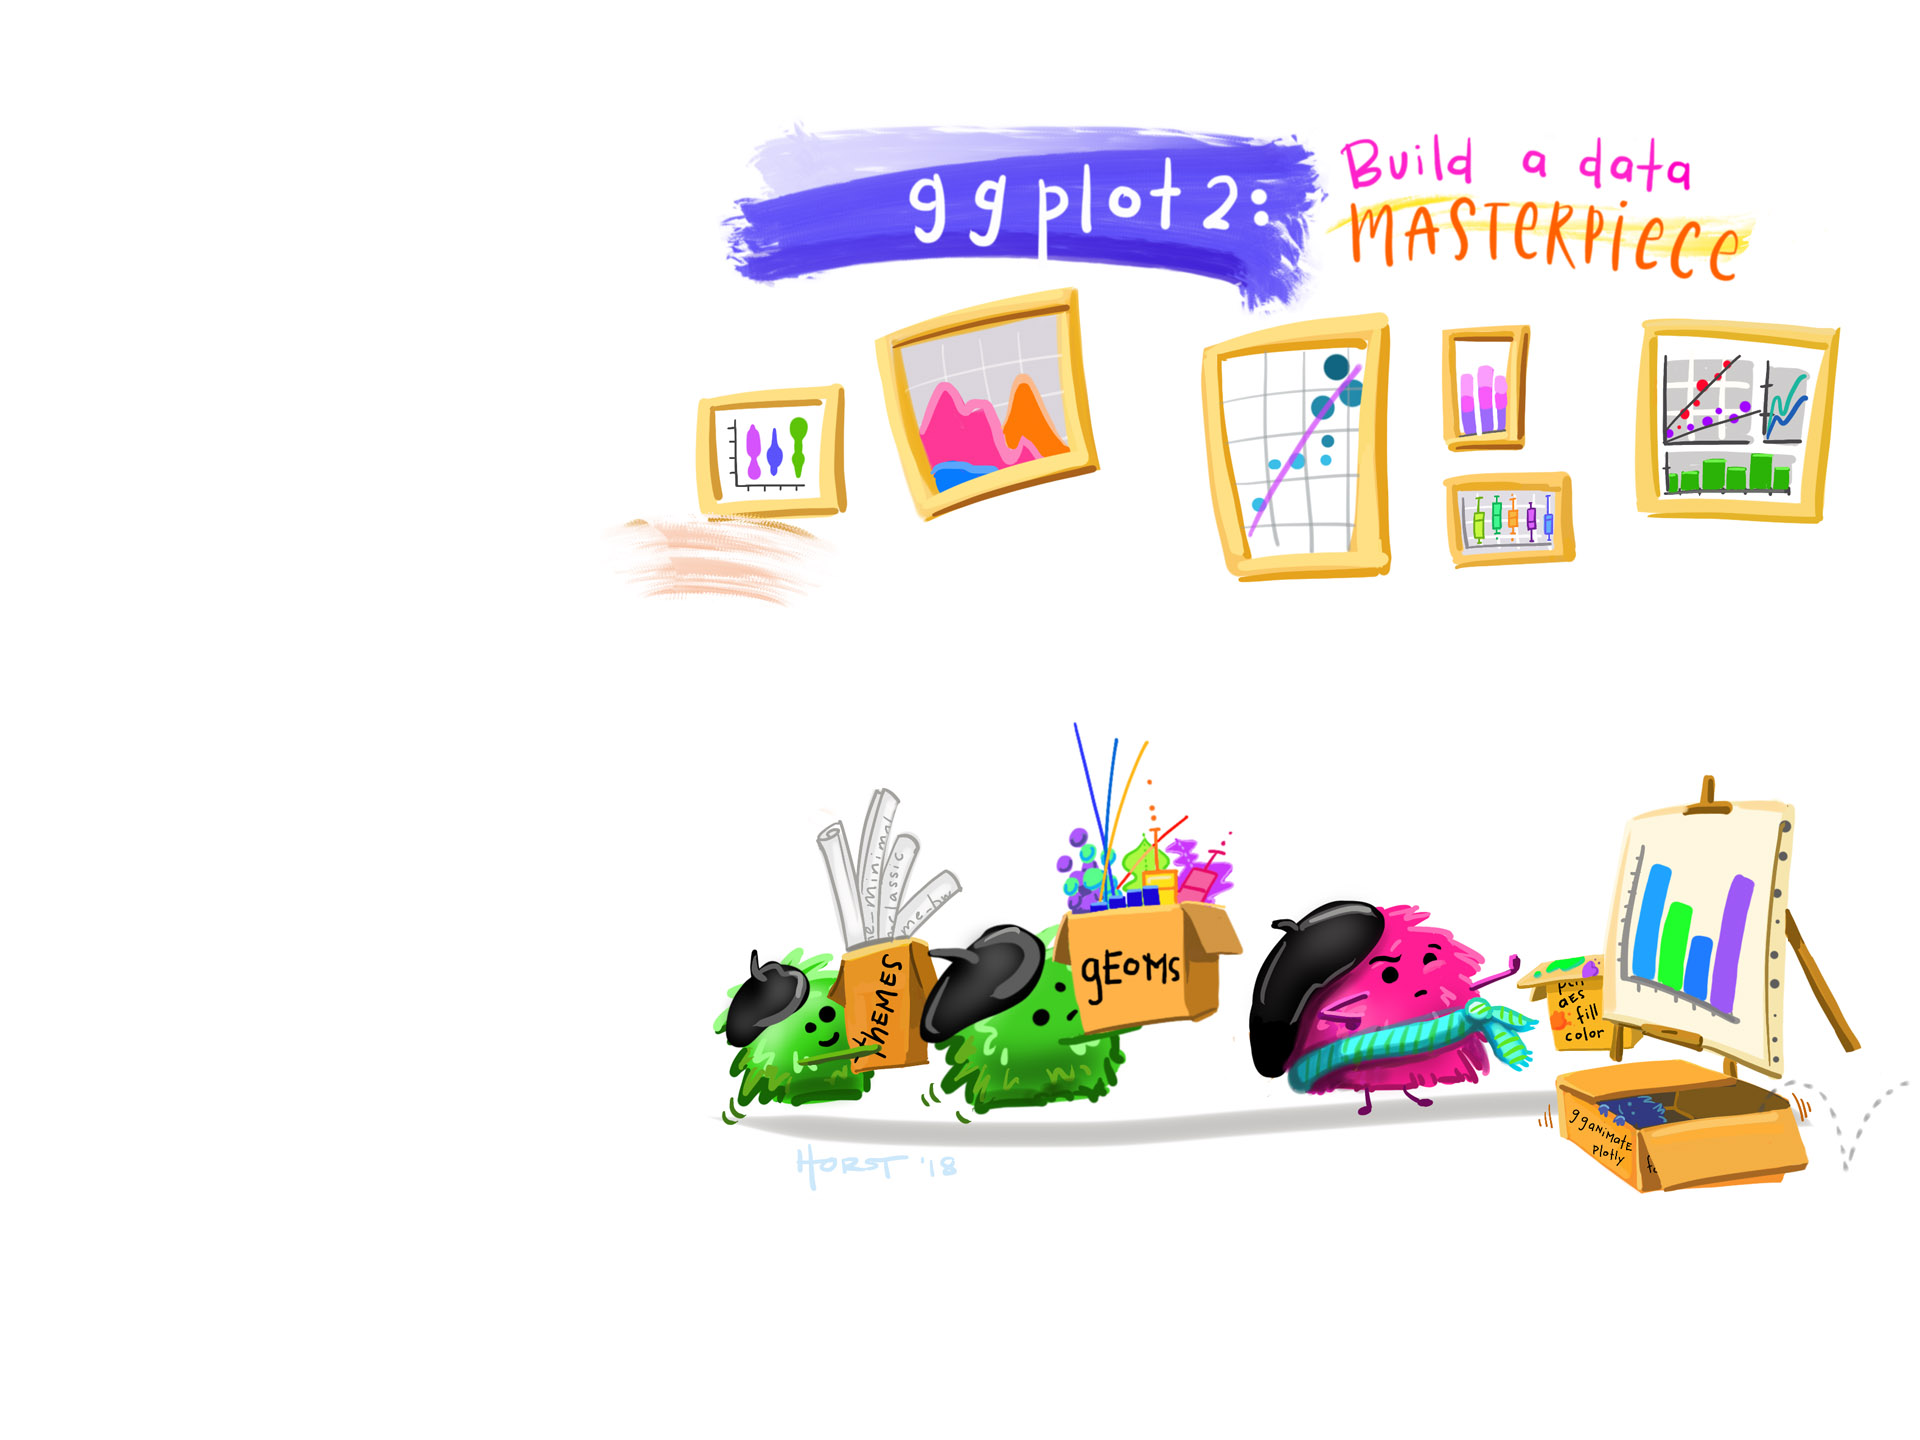 ggplot2:
Build a data
MASTERPIECE
minimal
classic
THEMES
gEOMS
aes
fill
color
gganimate
plotly
HORST '18